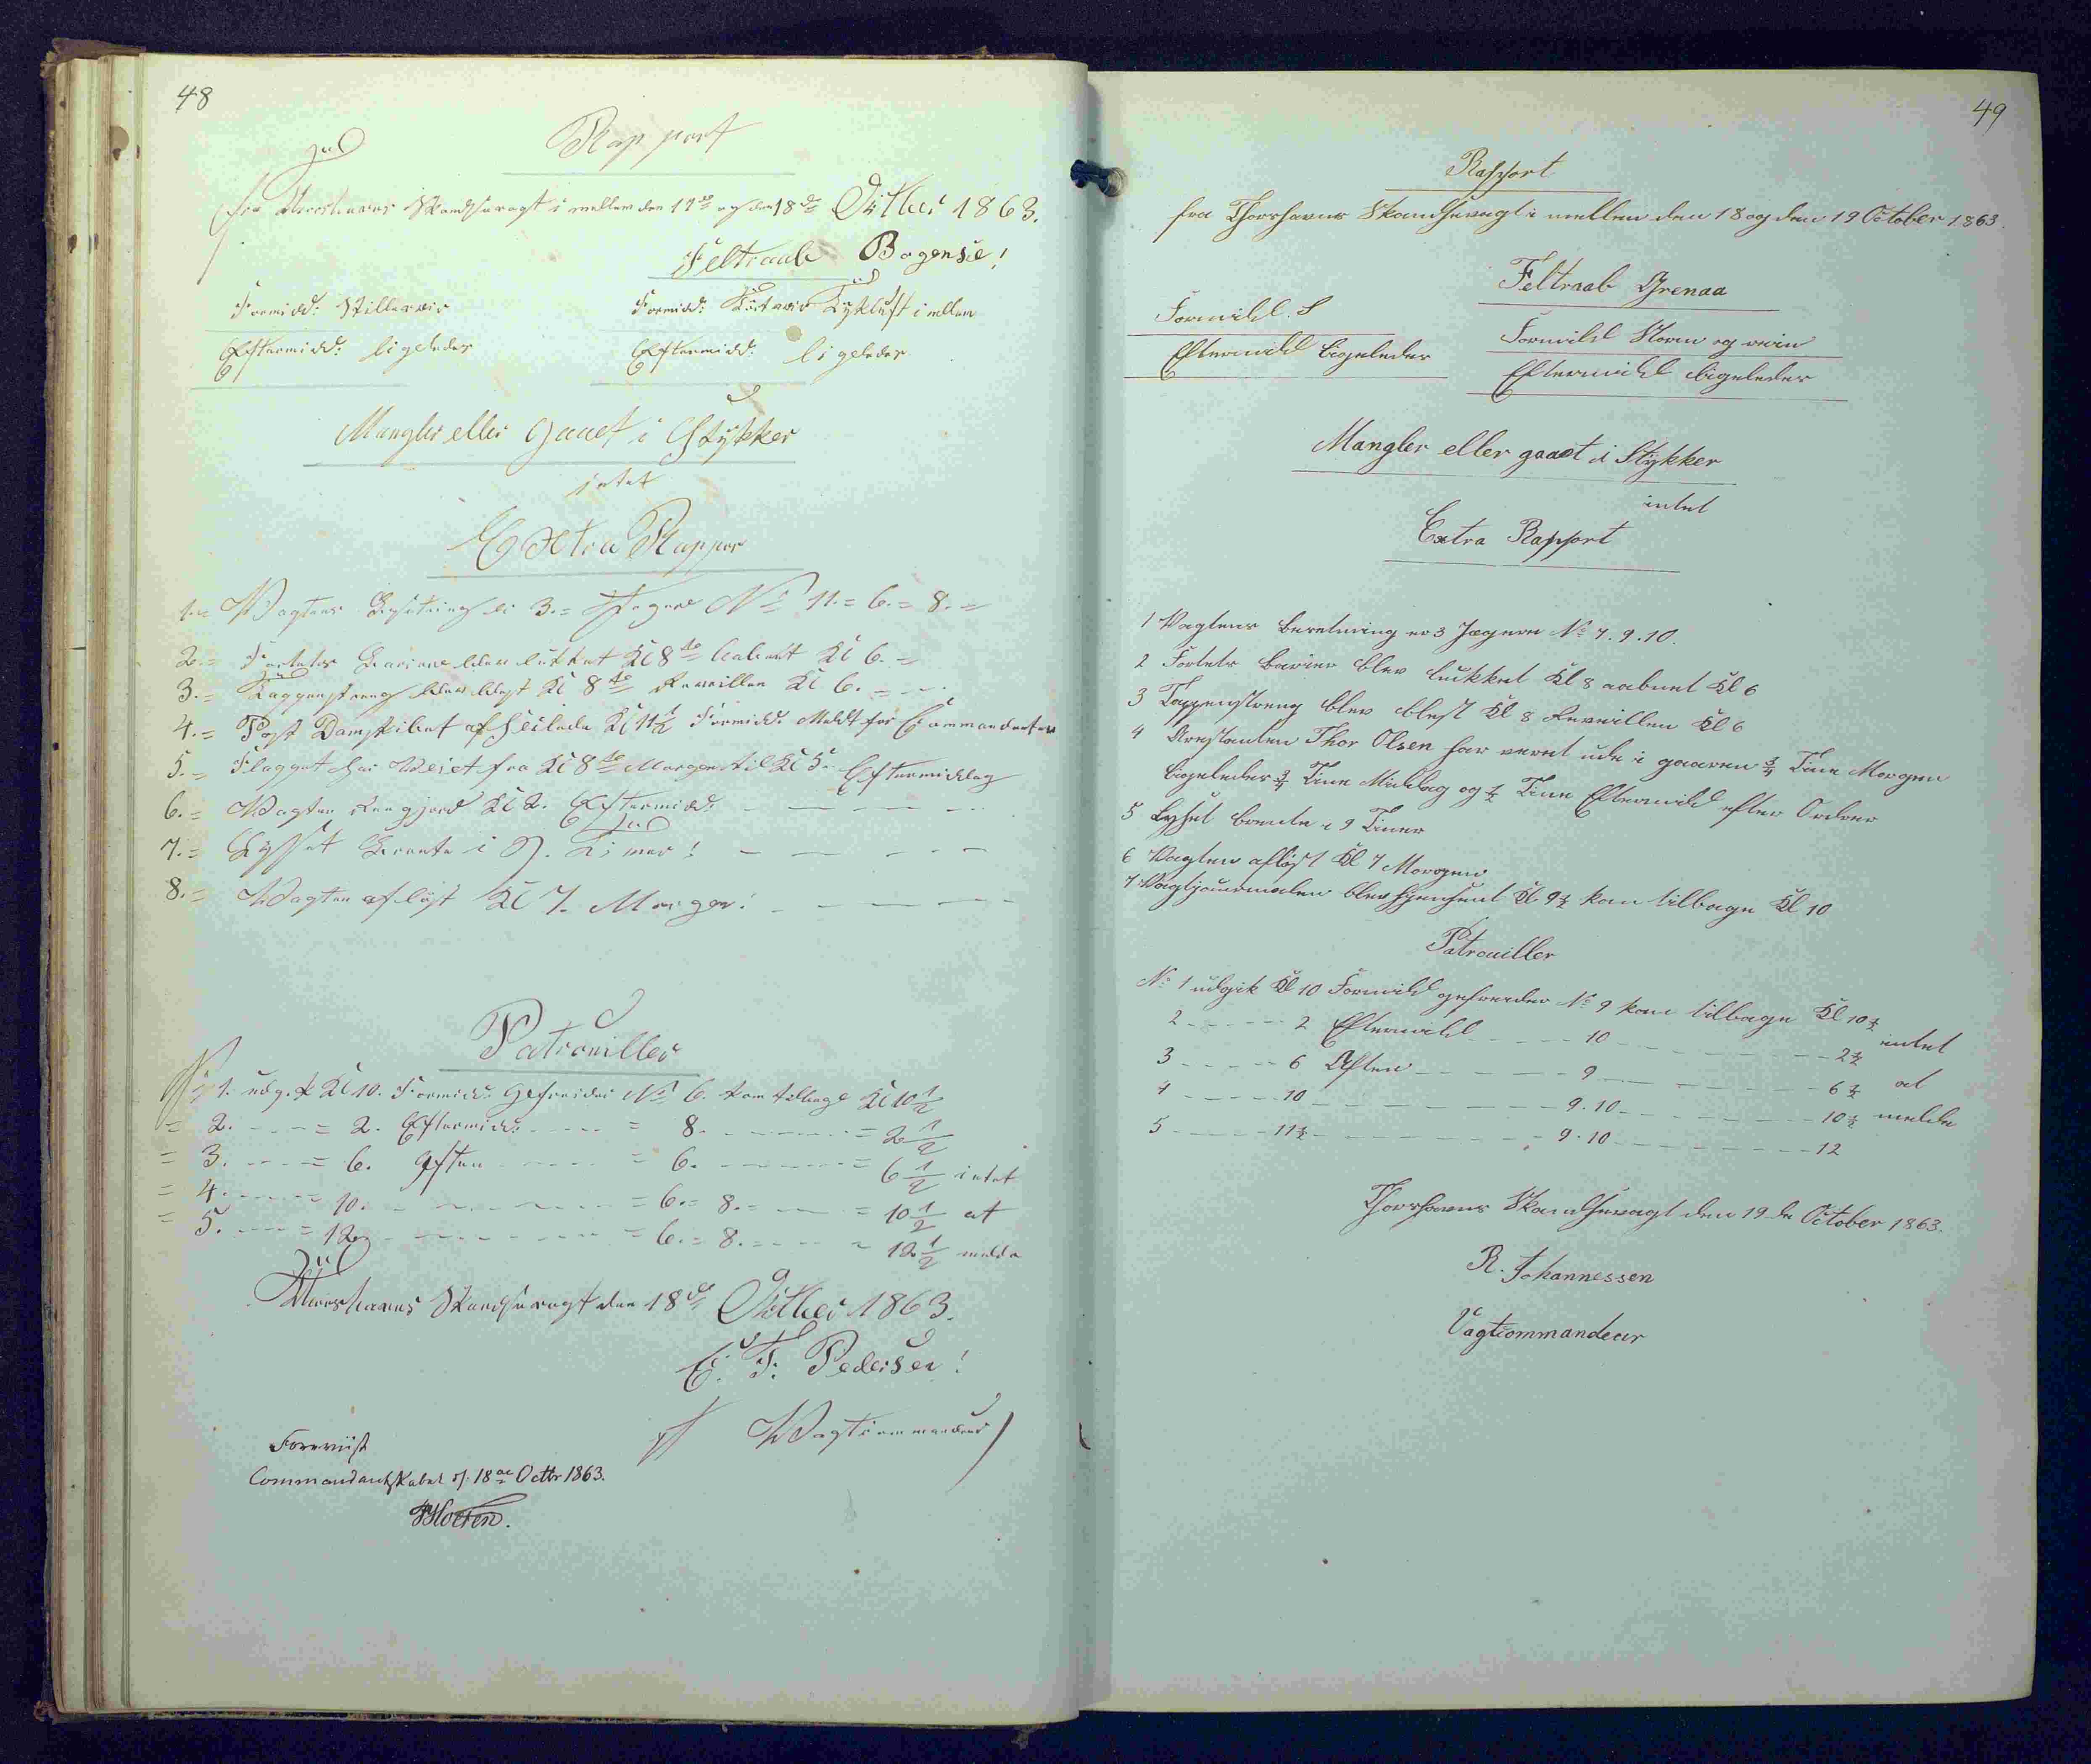 48
Rapport
fra Thorshavns Skandsevagt i mellem den 17de og den 18de Octber 1863.
Feltraab Bogense!
Formidd: Stilleveir
Formidd: Tykluft imellem
Eftermidd: ligeledes
Eftermidd: ligeledes
Mangler eller gaaet i Stykker
intet
Extra Rapport
1.= Vagtens Besetning er 3.= Jægere No 11.= 6.= 8.=
2.= Fortets Bariere blev lukket Kl 8te aabent Kl 6.=
3.= Tappenstreng blev blest Kl 8te Reveillen Kl 6.=
4.= Post Dampskibet afseilede Kl 11½ Formidd. Meldt for Commandanten
5.= Flagget har Veiet fra Kl 8te Morgen til Kl 5. Eftermiddag
6.= Vagten Rengjord Kl 2. Eftermidd.
7.= Lysset Brente i 9. Timer!
8.= Vagten afløst Kl 7. Morgen!
Patrouiller
No 1. udgik Kl 10. Formidd: Gefreider No 6. kom tilbage Kl 10½
= 2. = 2. Eftermidd: = 8. = 2½
= 3. = 6. Aften = 6. = 6½ intet
= 4. = 10. = 6.= 8.= = 10½ at
= 5. = 12. = 6.= 8.= = 12½ melde
Thorshavns Skandsevagt den 18de Octber 1863.
E. F. Pedersen!
Vagtcommandeur
Foreviist
Commandantskabet d. 18de Octbr 1863.
49
Rapport
fra Thorshavns Skandsevagt i mellem den 18 og den 19 October 1863.
Feltraab Grenaa
Formidd. S
Formidd Storm og rein
Eftermidd ligeledes
Eftermidd ligeledes
Mangler eller gaaet i Stykker
intet
Extra Rapport
1 Vagtens besetning er 3 Jægere No 7. 9. 10.
2 Fortets barier blev lukket Kl 8 aabnet Kl 6
3 Tappenstreng blev blest Kl 8 Reveillen Kl 6
4 Arestanten Thor Olsen har veret ude i gaaren ¾ Time Morgen
ligeledes ¾ Time Middag og ½ Time Eftermidd efter Ordrer
5 Lyset brente i 9 Timer
6 Vagten afløst Kl 7 Morgen
7 Vagtjournalen blev hjemsent Kl 9½ kom tilbage Kl 10
Patrouiller
No 1 udgik Kl 10 Formidd gefreider No 9 kom tilbage Kl 10½
2 2 Eftermidd 10 2½ intet
3 6 Aften 9 6½ at
4 10 9. 10 10½ melde
5 11½ 9. 10 12
Thorshavns Skandsevagt den 19de October 1863.
R. Johannessen
Vagtcommandeur